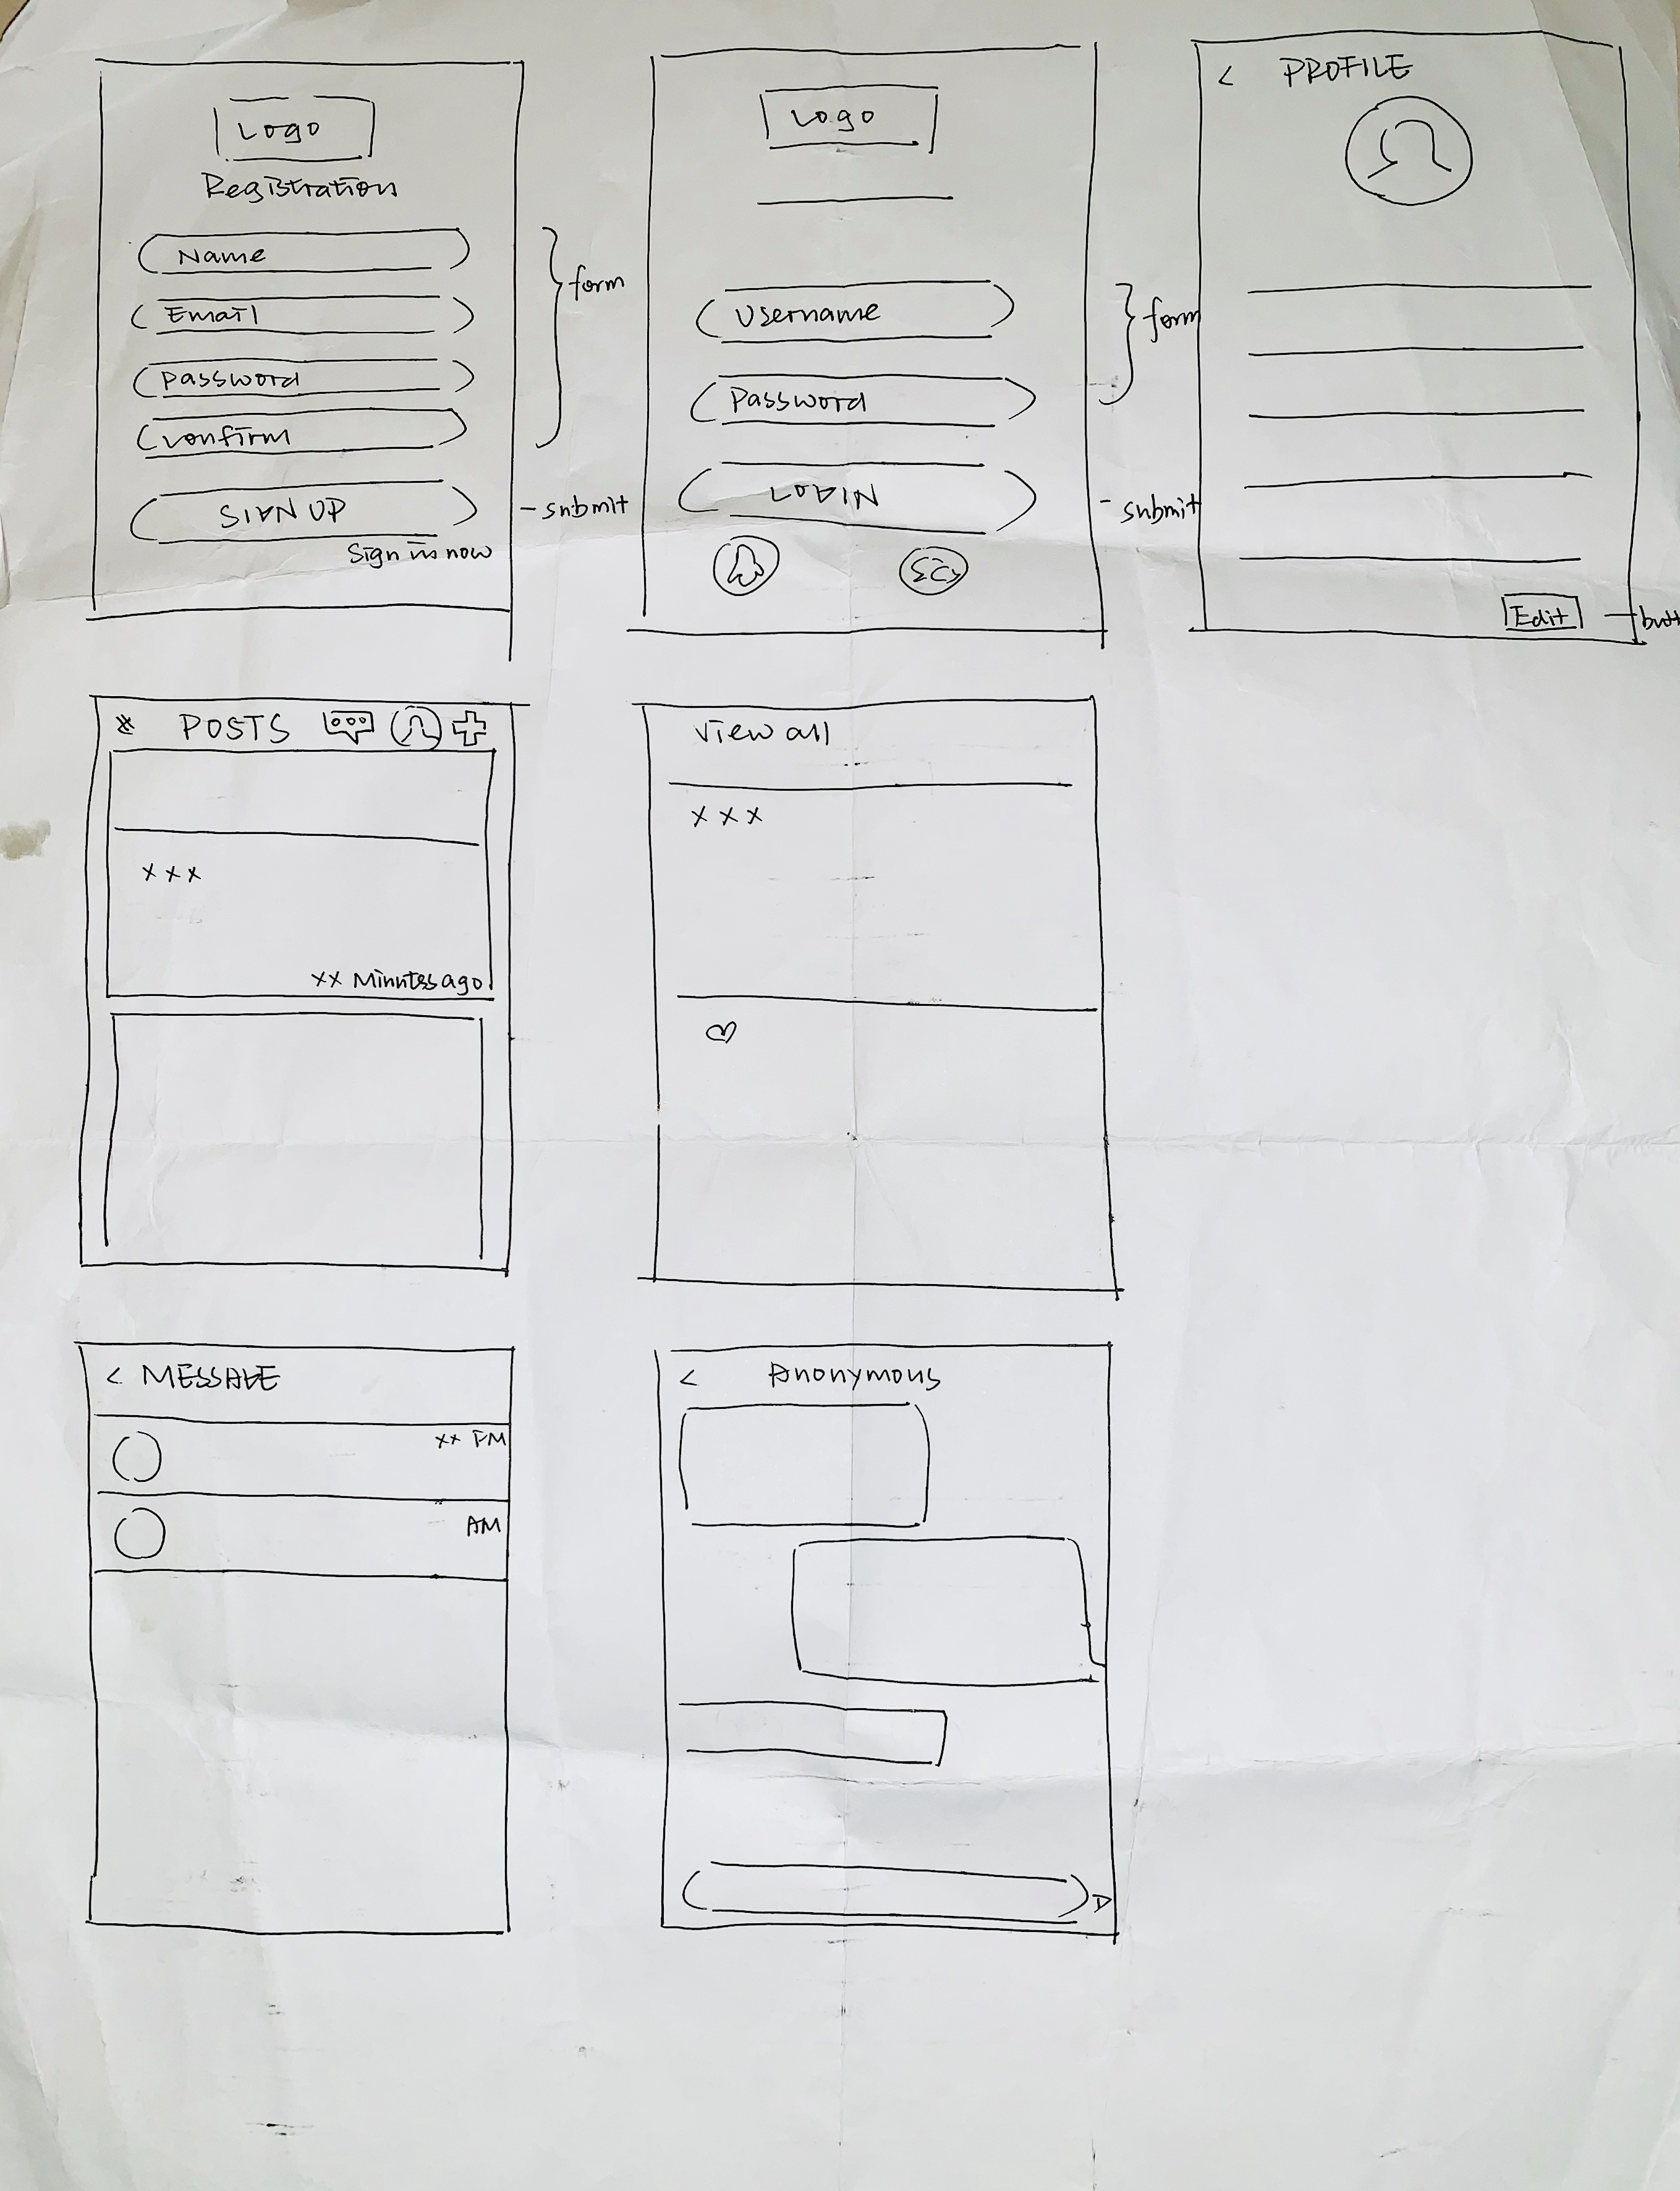 Logo
Registration
Name
Email
Password
Confirm
SIGN UP
Sign in now
form
- submit
Logo
Username
Password
LOGIN
form
- submit
< PROFILE
Edit
POSTS
x x x
xx Minutes ago
View all
x x x
< MESSAGE
xx PM
AM
< Anonymous